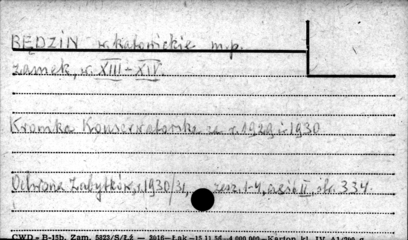 BĘDZIN w. katowickie m.p.
zamek, w. XIII – XIV.
Kronika Konserwatorska za r. 1929 i 1930
Ochrona Zabytków, r. 1930/31, zesz. 1-4, część II, str. 334.
CWD – B-15b. Zam. 5823/S/Łż — 3016 – Łak – 15.11.56 – 4.000.000 – Karton kl. IV